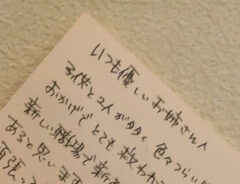 いつも優しいお姉さんへ
子供と2人が多く、色々つらい
おかげでとても救われ
新しい職場で新
あると思いま
頑張って